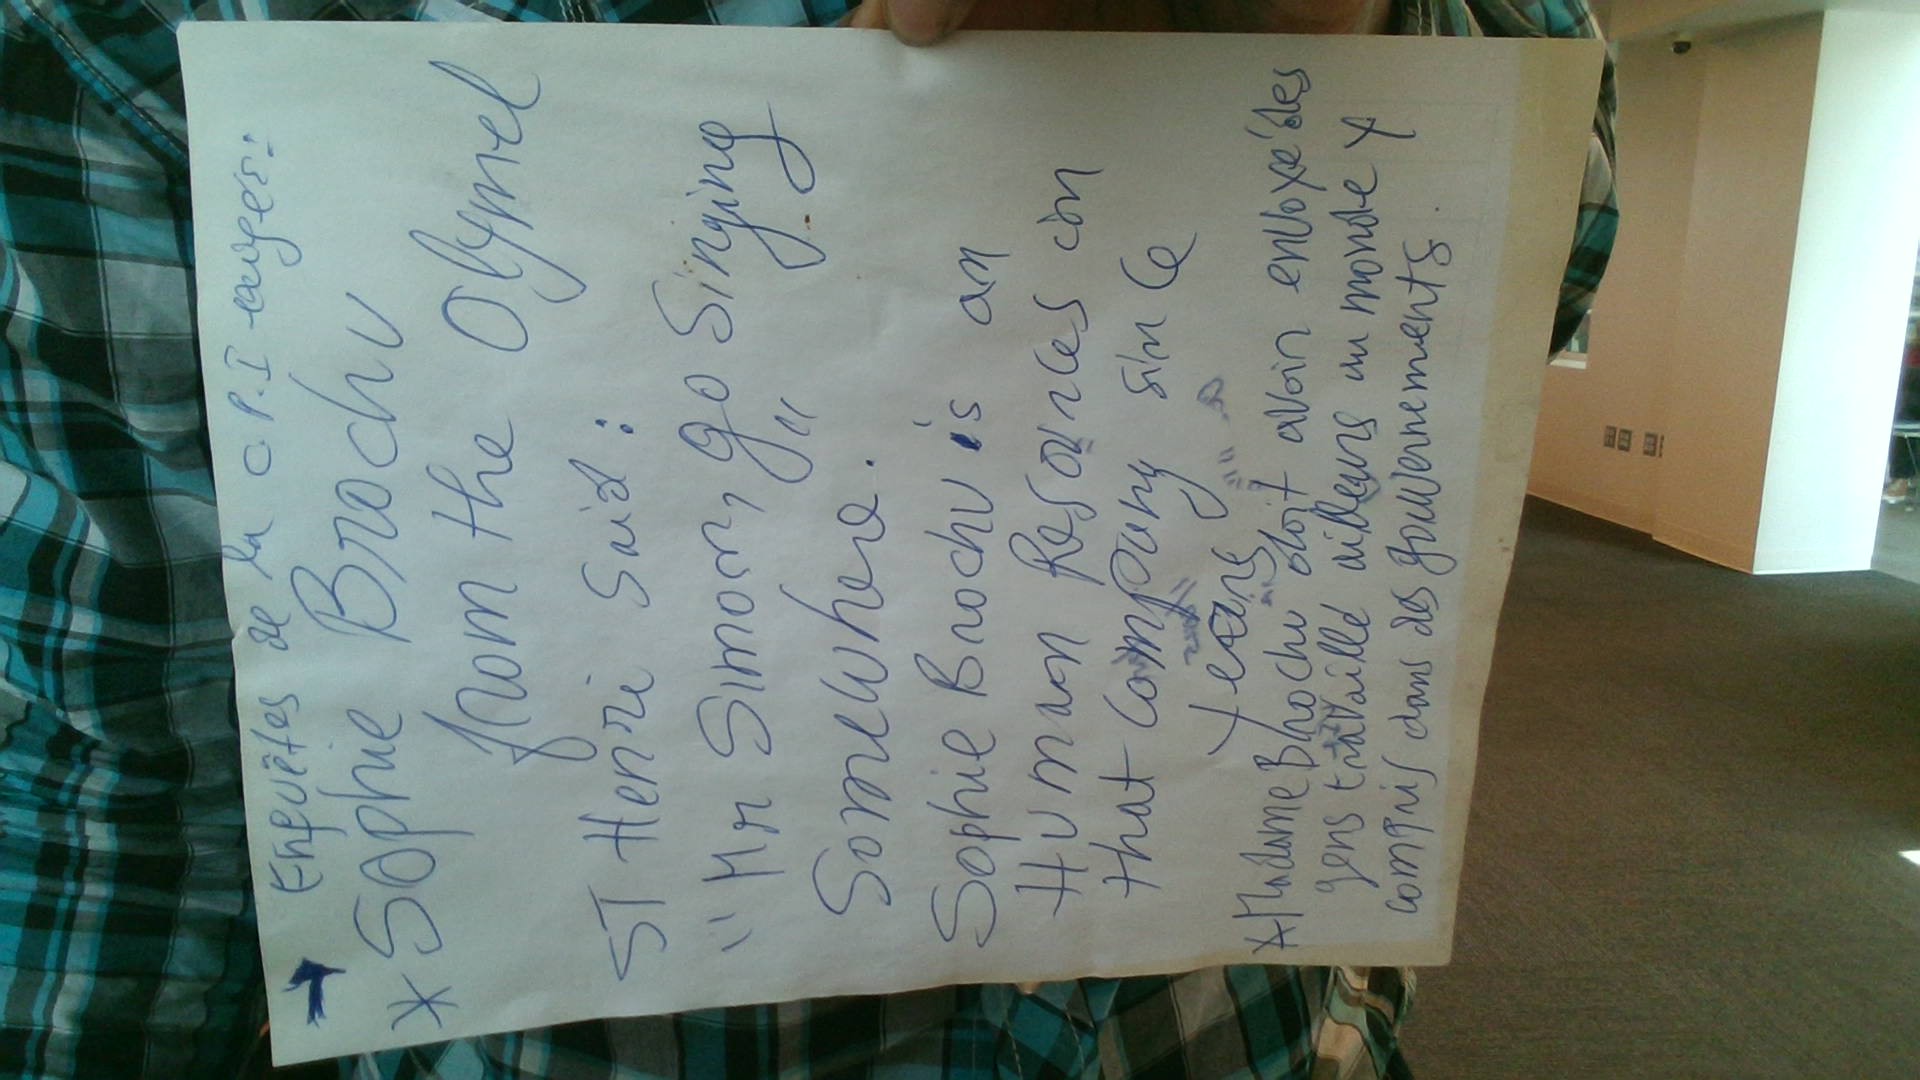 → Enquêtes de la C.P.I exigées:
* Sophie Brochu
from the Olymel
ST Henri Said:
"Mr Simon, go Singing
Somewhere."
Sophie Brochu is an
Human Resources in
that Company sin Ce
Years
* Madame Brochu doit avoir envoyé des
gens travaillé ailleurs un monde y
compris dans des gouvernements.